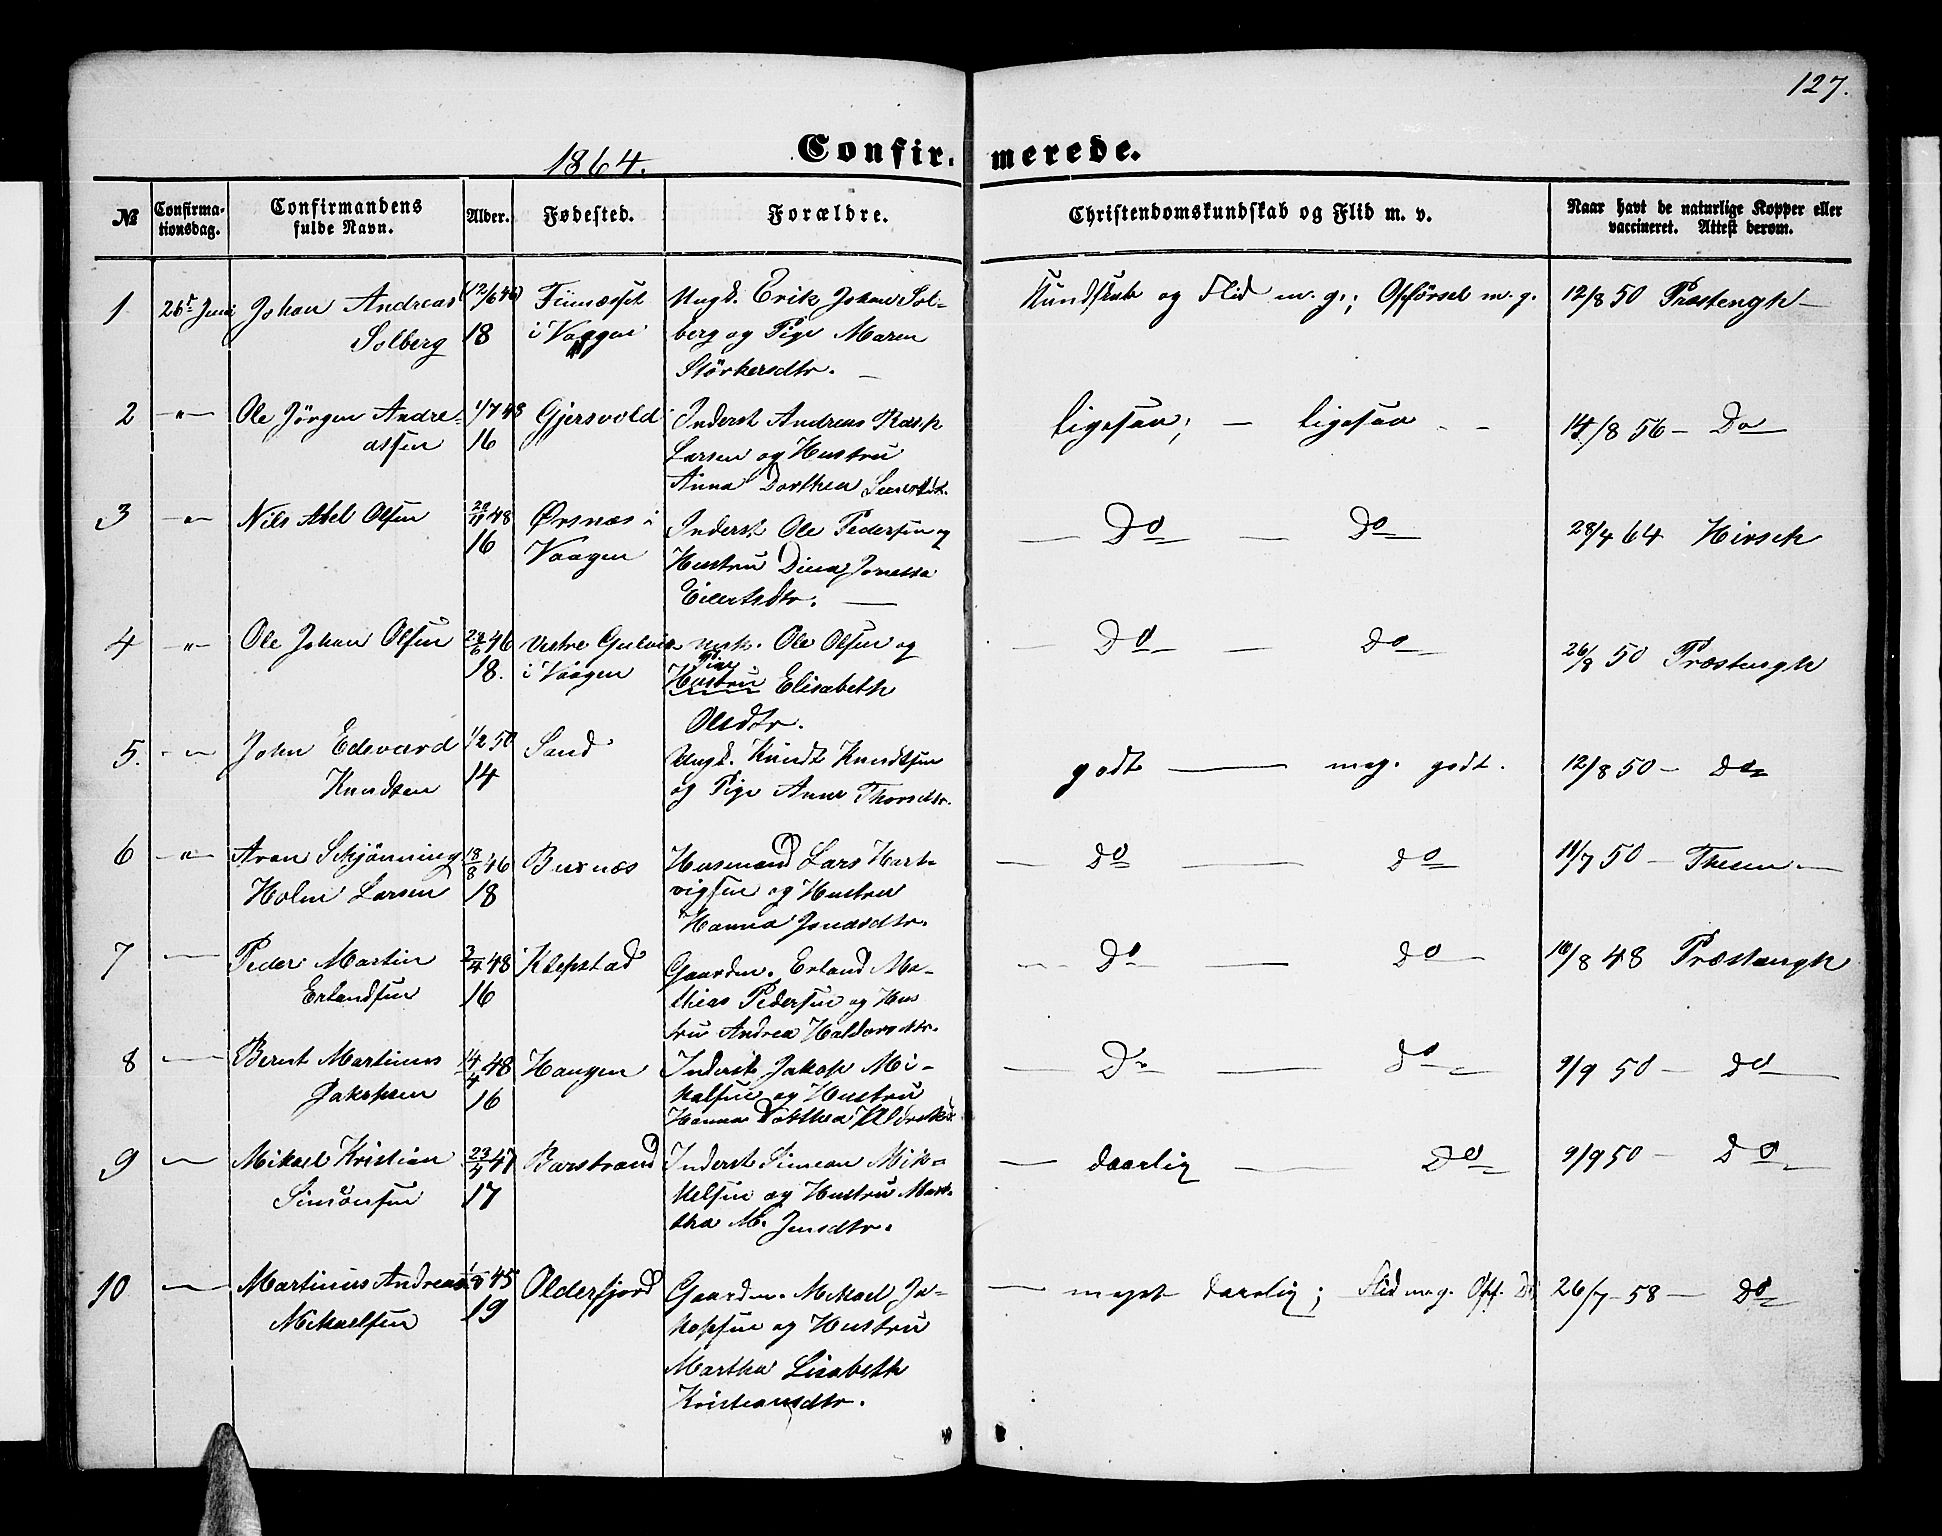 127.
1864.
Confirmerede.
№
Confirmationsdag.
Confirmandens fulde Navn.
Alder.
Fødested.
Forældre.
Christendomskundskab og Flid m. v.
Naar havt de naturlige Kopper eller vaccineret. Attest derom.
1 26r Juni Johan Andreas 12/6 46 Ungk. Erik Johan Sol- Kundskab og Flid m. g.; Opførsel m. g. 12/8 50 Præstengh
Solberg 18 i Vaagen berg og Pige Maren
Størkersdtr.
2 -"- Ole Jörgen Andre- 1/7 48 Gjersvold Inderst Andreas Rask ligesaa; - ligesaa - 14/8 56 - Do
assen 16 Larsen og Hustru
Anna Dorthea
3 -"- Nils Abel Olsen 48 Ørsnæs i Inderst Ole Pedersen og - Do - Do 28/4 64 Hirsch
16 Vaagen Hustru Dina Jonetta
Eilertsdtr.
4 -"- Ole Johan Olsen 46 Vestre Ole Olsen og - Do - Do 26/8 50 Præstengh
18. i Vaagen Pige
Hustru Elisabeth
Olsdtr.
5. -"- John Edevard 1/2 50 Sand Ungk. Knudt Knudtsen godt - meg. godt. 12/8 50 - Do
Knudsen 14 og Pige Anne Thorsdtr.
6 -"- Aron Schjønning 18/8 46 Buxnæs Husmand Lars Hart- - Do - Do 50 - Thesen -
Holm Larsen 18 vigsen og Hustru
Hanna Jonasdtr.
7 - Peder Martin 3/4 48 Klepstad Gaardm. Erland Ma- - Do - Do 10/8 48 Præstengh
Erlandsen 16 thias Pedersen og Hus
tru Andrea Haldorsdtr.
8 - Bernt Martinus 14/4 48 Haugen Inderst Jakop Mi- - Do - Do 9/9 50 - Do
Jakopsen 16 kalsen og Hustru
Hanna Dorthea
9 - Mikael Kristian 23/4 47 Barstrand Inderst Simeon Mik- - daarlig - Do 9/9 50 - Do
Simonsen 17 kelsen og Hustru Mar-
tha M. Jensdtr.
10 - Martinus Andreas 45 Olderfjord Gaardm. Mikael Ja- - meget daarlig; Flid meg. Opf. Do 26/7 - 58 - Do
Mikaelsen 19 kopsen og Hustru
Martha Lisabeth
Kristiansdtr.